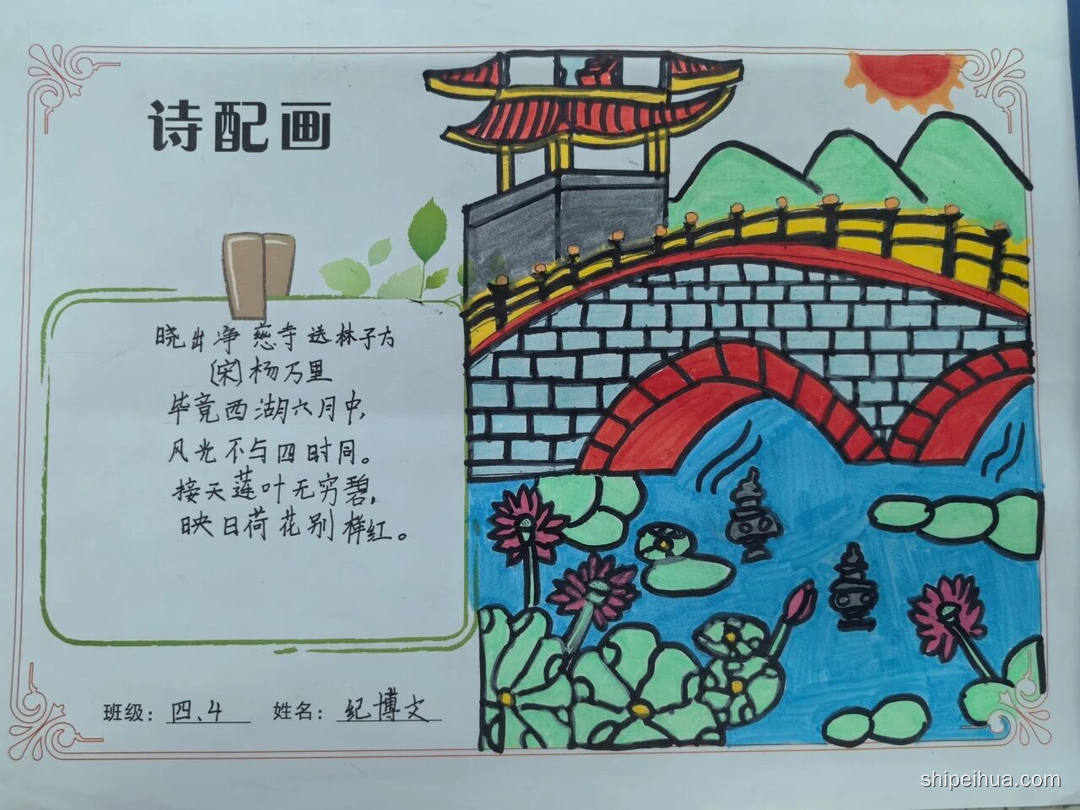 诗配画
晓出净慈寺送林子方
〔宋〕杨万里
毕竟西湖六月中,
风光不与四时同。
接天莲叶无穷碧,
映日荷花别样红。
班级：四、4 姓名：纪博文
shipeihua.com